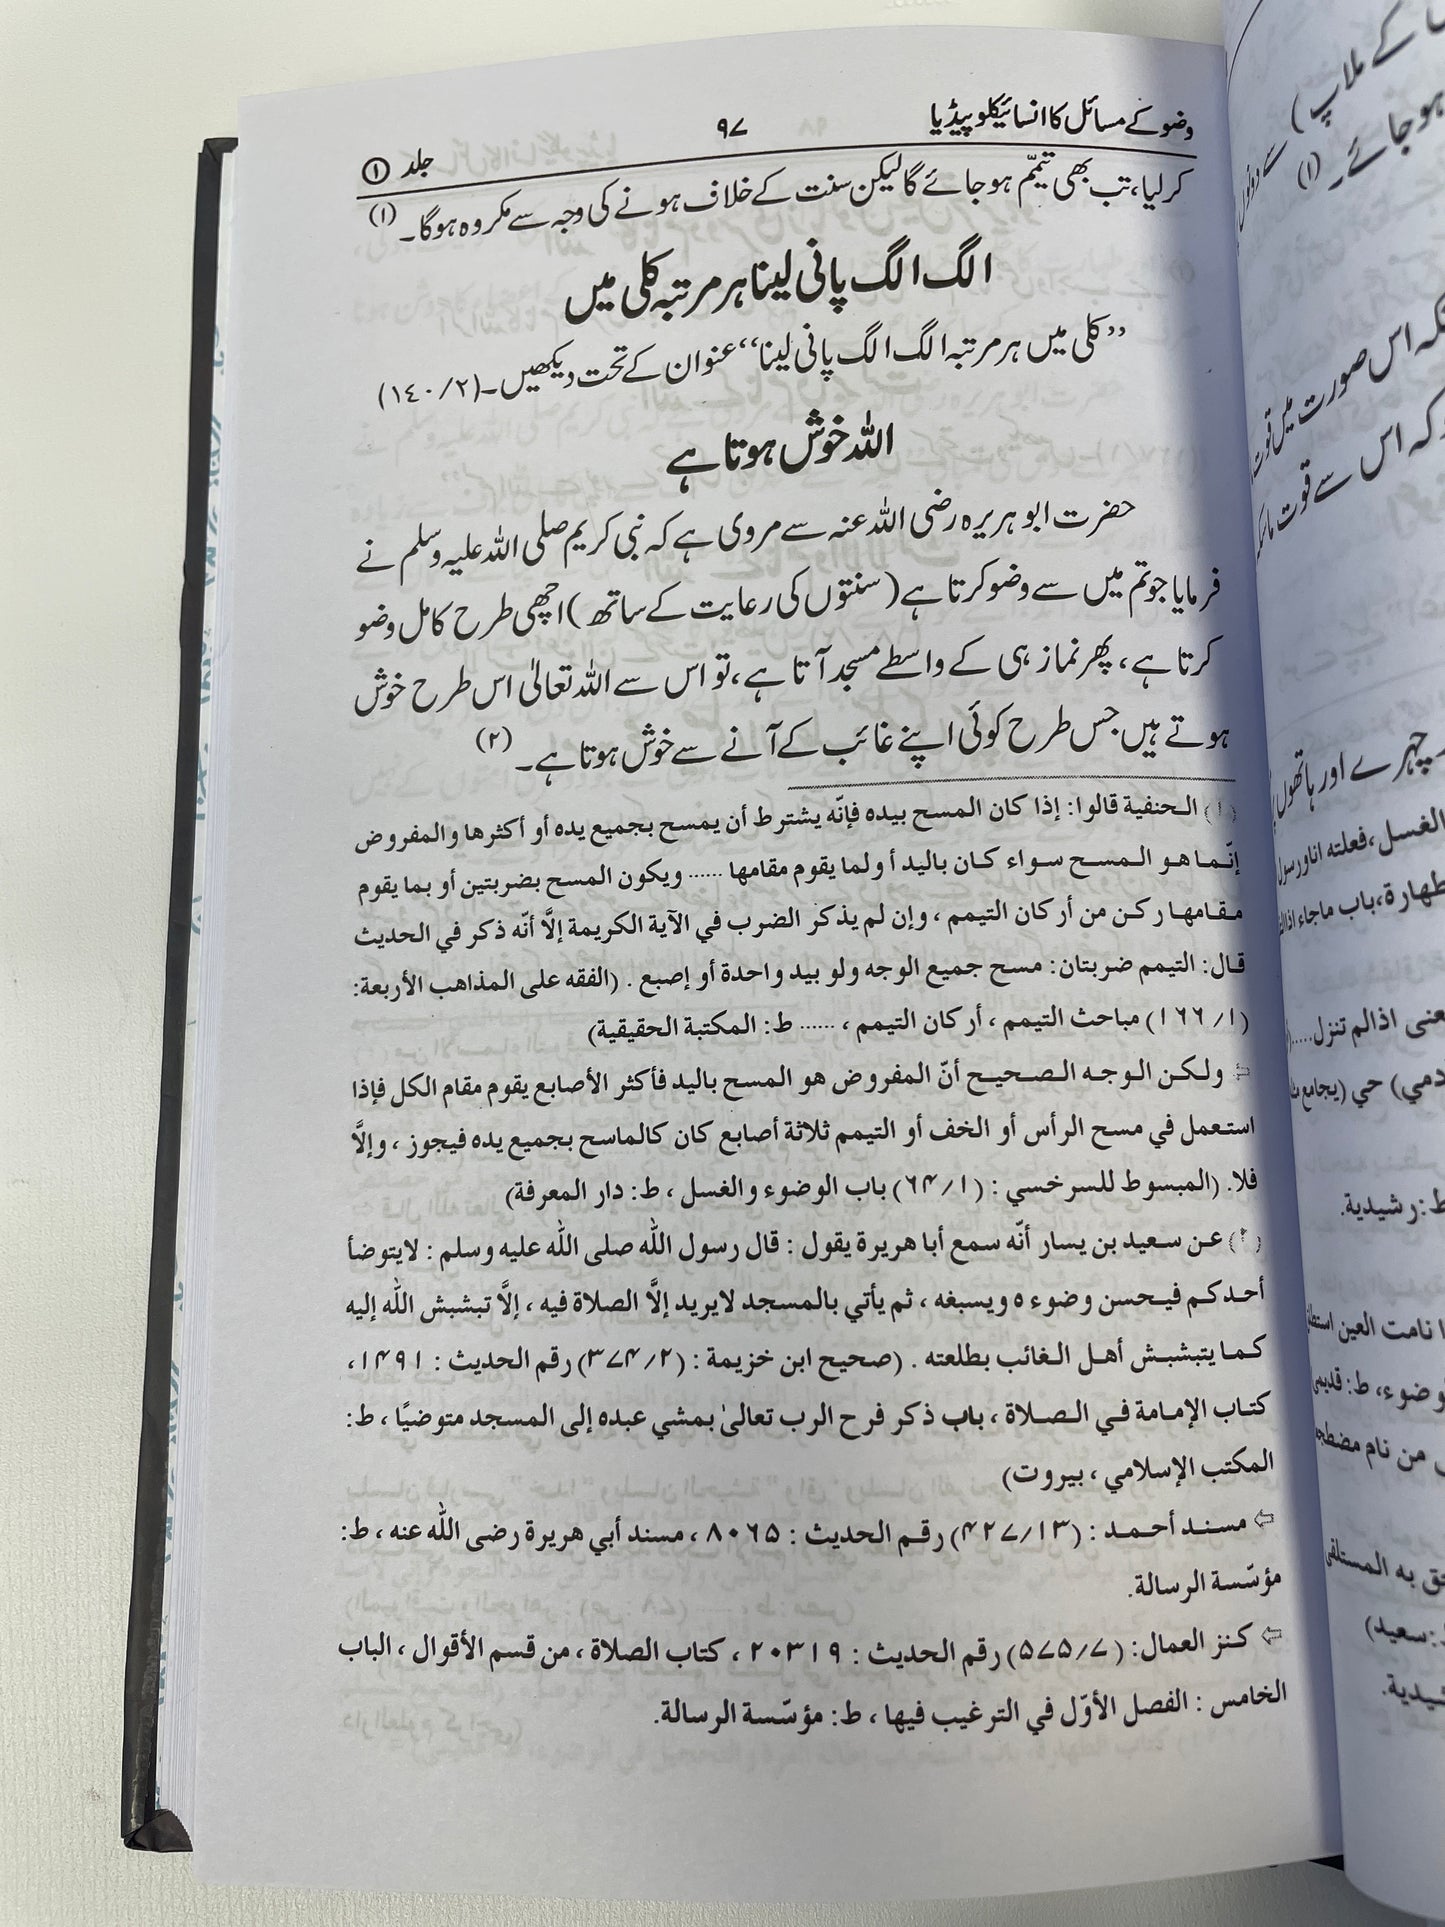 وضو کے مسائل کا انسائیکلوپیڈیا ۹۷ جلد ①
کرلیا، تب بھی تیمّم ہوجائے گا لیکن سنت کے خلاف ہونے کی وجہ سے مکروہ ہوگا۔ (۱)
الگ الگ پانی لینا ہر مرتبہ کلی میں
”کلی میں ہر مرتبہ الگ الگ پانی لینا“ عنوان کے تحت دیکھیں۔(۱٤۰/۲)
اللہ خوش ہوتا ہے
حضرت ابوہریرہ رضی اللہ عنہ سے مروی ہے کہ نبی کریم صلی اللہ علیہ وسلم نے
فرمایا جو تم میں سے وضو کرتا ہے (سنتوں کی رعایت کے ساتھ) اچھی طرح کامل وضو
کرتا ہے، پھر نماز ہی کے واسطے مسجد آتا ہے، تو اس سے اللہ تعالیٰ اس طرح خوش
ہوتے ہیں جس طرح کوئی اپنے غائب کے آنے سے خوش ہوتا ہے۔ (۲)
(۱) الحنفية قالوا: إذا كان المسح بيده فإنّه يشترط أن يمسح بجميع يده أو أكثرها والمفروض
إنّما هو المسح سواء كان باليد أو لما يقوم مقامها ...... ويكون المسح بضربتين أو بما يقوم
مقامها ركن من أركان التيمم ، وإن لم يذكر الضرب في الآية الكريمة إلَّا أنّه ذكر في الحديث
قال: التيمم ضربتان: مسح جميع الوجه ولو بيد واحدة أو إصبع . (الفقه على المذاهب الأربعة:
(۱/۱۶۶) مباحث التيمم ، أركان التيمم ، ...... ط: المكتبة الحقيقية)
⇦ ولكن الوجه الصحيح أنّ المفروض هو المسح باليد فأكثر الأصابع يقوم مقام الكل فإذا
استعمل في مسح الرأس أو الخف أو التيمم ثلاثة أصابع كان كالماسح بجميع يده فيجوز ، وإلَّا
فلا. (المبسوط للسرخسي : (۱/۶۴) باب الوضوء والغسل ، ط: دار المعرفة)
(۲) عن سعيد بن يسار أنّه سمع أبا هريرة يقول : قال رسول الله صلى الله عليه وسلم : لا يتوضأ
أحدكم فيحسن وضوءه ويسبغه ، ثم يأتي بالمسجد لا يريد إلَّا الصلاة فيه ، إلَّا تبشبش الله إليه
كما يتبشبش أهل الغائب بطلعته . (صحيح ابن خزيمة : (۲/۳۷۴) رقم الحديث : ۱۴۹۱ ،
كتاب الإمامة في الصلاة ، باب ذكر فرح الرب تعالىٰ بمشي عبده إلى المسجد متوضيًا ، ط:
المكتب الإسلامي ، بيروت)
⇦ مسند أحمد : (۱۳/۴۲۷) رقم الحديث : ۸۰۶۵ ، مسند أبي هريرة رضى الله عنه ، ط:
مؤسّسة الرسالة.
⇦ كنز العمال: (۷/۵۷۵) رقم الحديث : ۲۰۳۱۹ ، كتاب الصلاة ، من قسم الأقوال ، الباب
الخامس : الفصل الأوّل في الترغيب فيها ، ط: مؤسّسة الرسالة.
کے ملاپ)
ہوجائے۔ (۱)
کہ اس صورت میں قوت
کہ اس سے قوت ماسکہ
چہرے اور ہاتھوں
الغسل، فعلته انا ورسول
طهارة، باب ماجاء اذا
يعنى اذالم تنزل.....
دمي) حي (يجامع
ط: رشيدية.
نامت العين
وضوء، ط: قديمى
من نام
حق به المستلقى
سعيد)